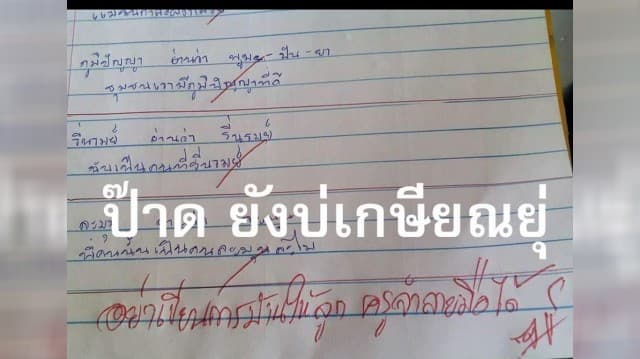 ภูมิปัญญา อ่านว่า พูม - ปัน - ยา
ชุมชนเรามีภูมิปัญญาที่ดี
อ่านว่า
ฉันเป็นคนที่
ป๊าด ยังบ่เกษียณยุ่
ที่คนนั้นเป็นคนละมุนละไม
อย่าเขียนการบ้านให้ลูก ครูจำลายมือได้